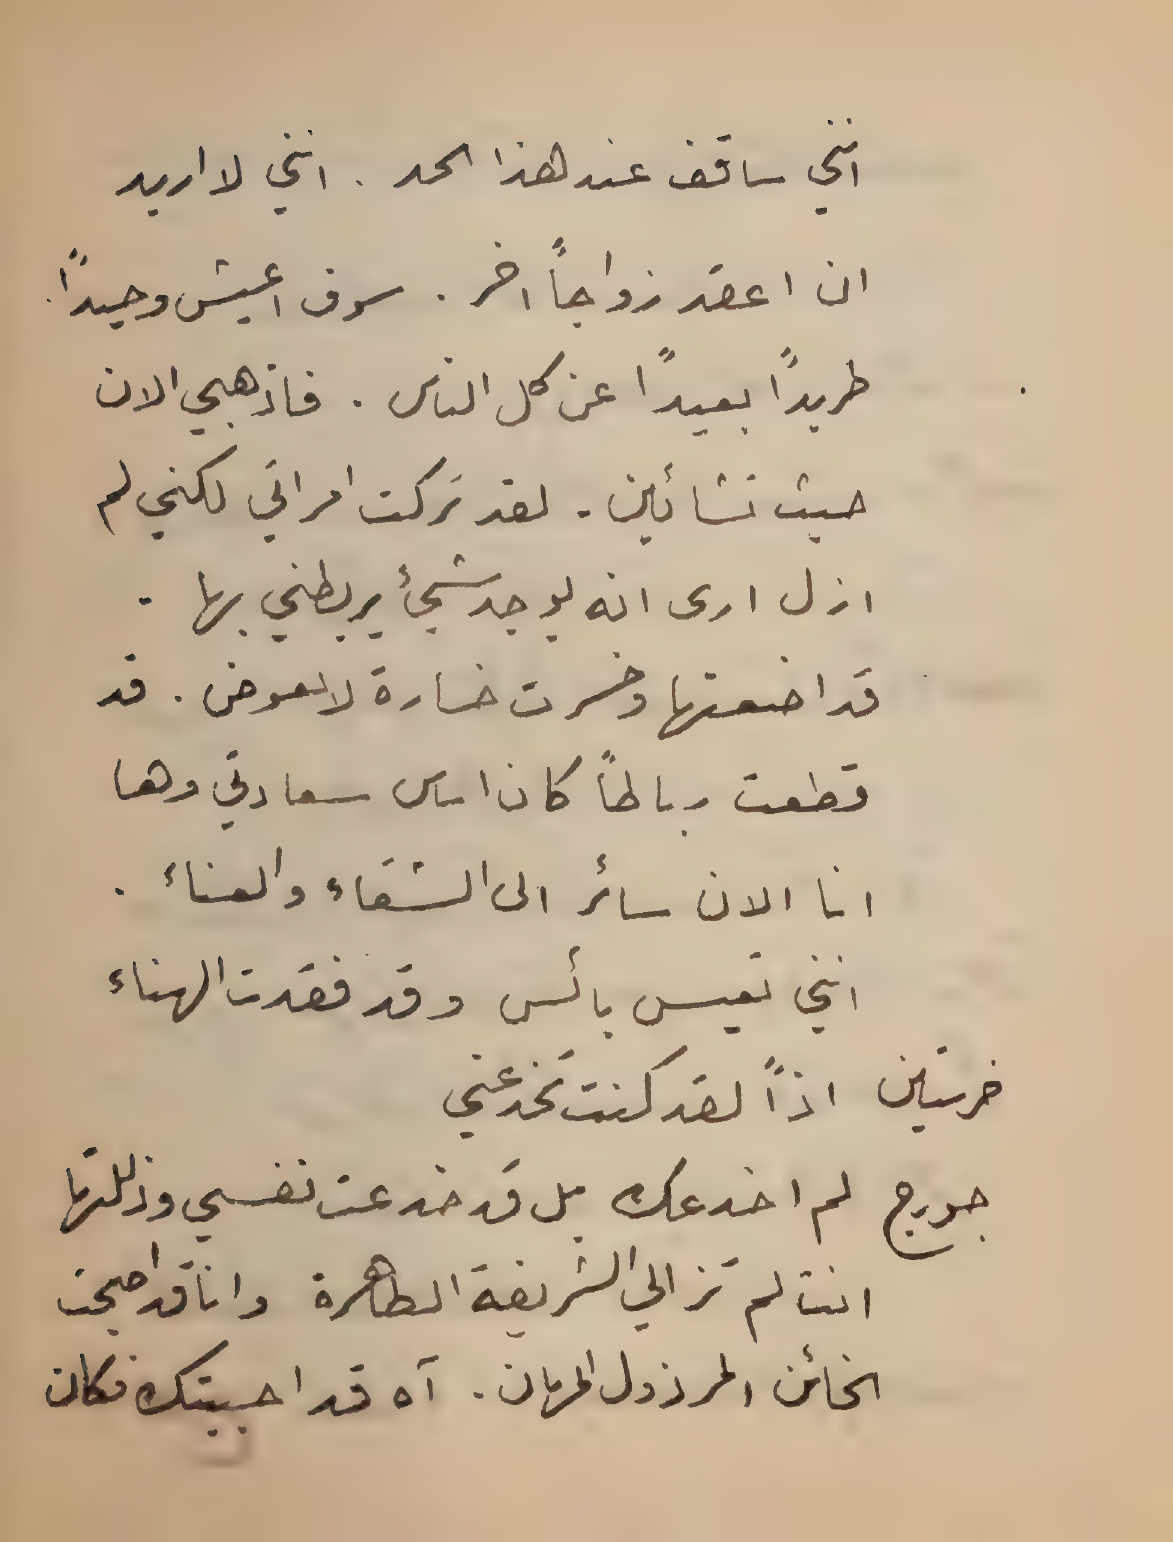 انني ساقف عند هذا الحد . انني لا اريد
ان اعقد زواجاً اخر . سوف اعيش وحيداً .
طريداً بعيداً عن كل الناس . فاذهبي الان
حيث تشائين . لقد تركت امراتي لكني لم
ازل ارى انه يوجد شيئ يربطني بها .
قد اضعتها وخسرت خسارة لا تعوض . قد
قطعت رباطاً كان اساس سعادتي وها
انا الان سائر الى الشقاء والعناء .
انني تعيس بائس وقد فقدت الهناء
اذاً لقد كنت تخدعني
جورج لم اخدعك بل قد خدعت نفسي وذللتها
انت لم تزالي الشريفة الطاهرة وانا قد اصبحت
الخائن المرذول المهان . آه قد احببتك فكان